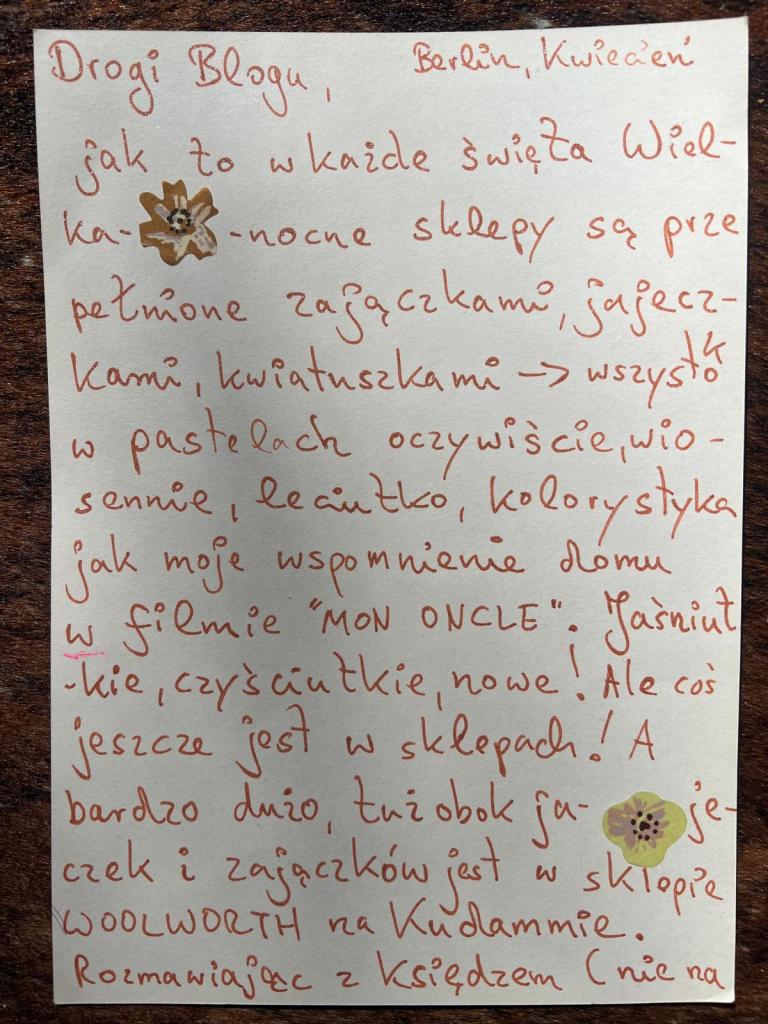 Drogi Blogu, Berlin, Kwiecień
jak to w każde święta Wiel-
ka- -nocne sklepy są prze
pełnione zajączkami, jajecz-
kami, kwiatuszkami → wszystko
w pastelach oczywiście, wio-
sennie, leciutko, kolorystyka
jak moje wspomnienie domu
w filmie "MON ONCLE". Jaśniut
-kie, czyściutkie, nowe! Ale coś
jeszcze jest w sklepach! A
bardzo dużo, tuż obok ja- je-
czek i zajączków jest w sklepie
WOOLWORTH na Kudammie.
Rozmawiając z Księdzem (nie na